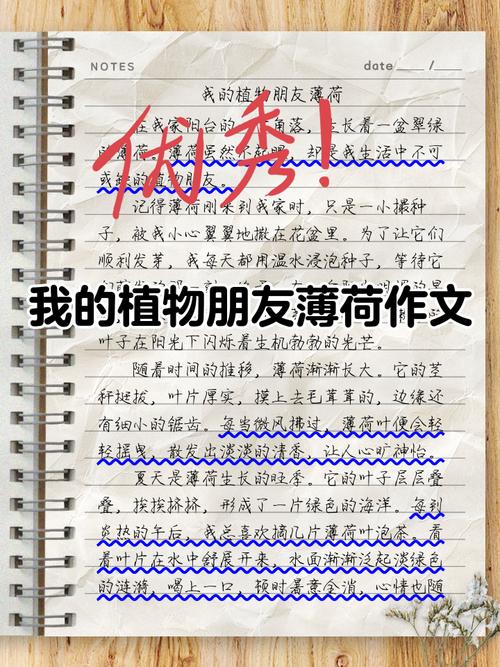 NOTES
date ____ /____
我的植物朋友薄荷
在我家阳台的 角落，生长着一盆翠绿
的薄荷。薄荷虽然不 ，却是我生活中不可
或缺的植物朋友。
优秀！
记得薄荷刚来到我家时，只是一小撮种
子，被我小心翼翼地撒在花盆里。为了让它们
顺利发芽，我每天都用温水浸泡种子，等待它
我的植物朋友薄荷作文
叶子在阳光下闪烁着生机勃勃的光芒。
随着时间的推移，薄荷渐渐长大。它的茎
秆挺拔，叶片厚实，摸上去毛茸茸的，边缘还
有细小的锯齿。每当微风拂过，薄荷叶便会轻
轻摇曳，散发出淡淡的清香，让人心旷神怡。
夏天是薄荷生长的旺季。它的叶子层层叠
叠，挨挨挤挤，形成了一片绿色的海洋。每到
炎热的午后，我总喜欢摘几片薄荷叶泡茶。看
着叶片在水中舒展开来，水面渐渐泛起淡绿色
的涟漪，喝上一口，顿时暑意全消，心情也随